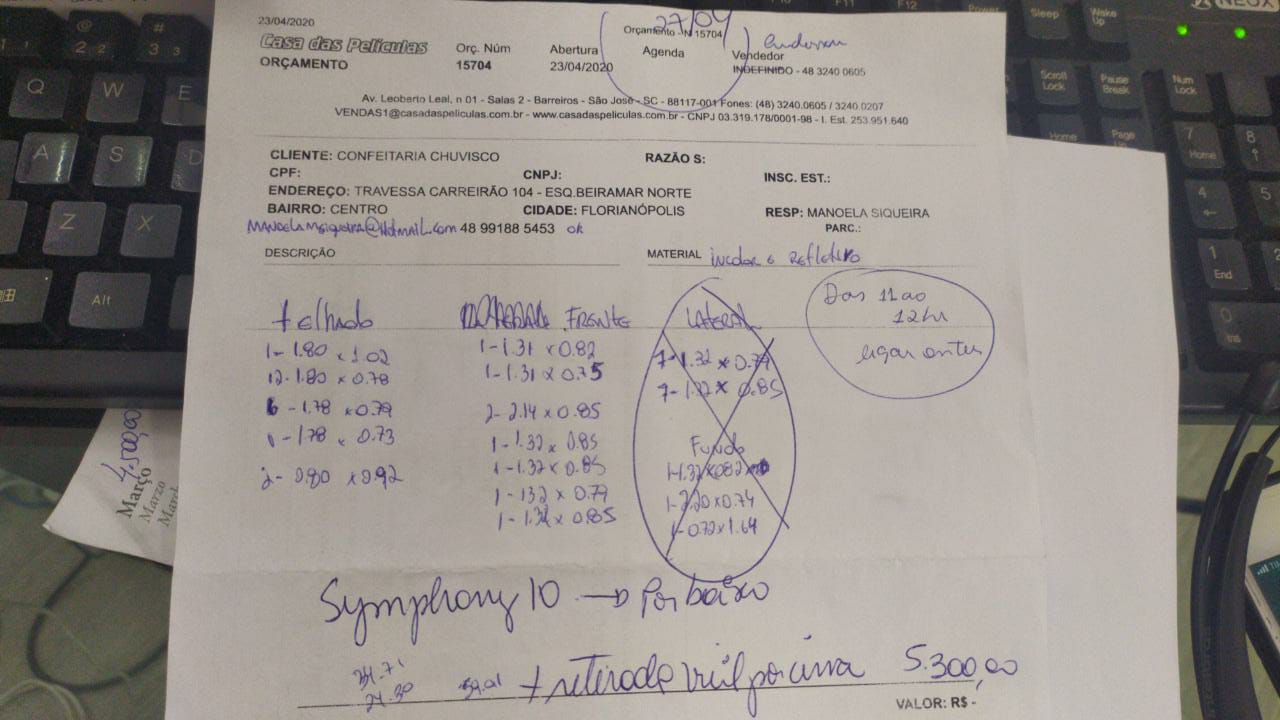 23/04/2020
27/04
Orçamento - N 15704
Casa das Películas
ORÇAMENTO
Orç. Núm
15704
Abertura
23/04/2020
Agenda
Anderson
Vendedor
INDEFINIDO - 48 3240 0605
Av. Leoberto Leal, n 01 - Salas 2 - Barreiros - São José - SC - 88117-001 Fones: (48) 3240.0605 / 3240.0207
VENDAS1@casadaspeliculas.com.br - www.casadaspeliculas.com.br - CNPJ 03.319.178/0001-98 - I. Est. 253.951.640
CLIENTE: CONFEITARIA CHUVISCO RAZÃO S:
CPF: CNPJ: INSC. EST.:
ENDEREÇO: TRAVESSA CARREIRÃO 104 - ESQ.BEIRAMAR NORTE
BAIRRO: CENTRO CIDADE: FLORIANÓPOLIS RESP: MANOELA SIQUEIRA
MANOELAMSIQUEIRA@HOTMAIL.COM 48 99188 5453 OK PARC.:
DESCRIÇÃO MATERIAL incolor e Refletivo
telhado
1- 1.80 x 1.02
12- 1.80 x 0.78
6 - 1.78 x 0.79
1 - 1.78 x 0.73
2- 0.80 x 0.92
FRENTE
1-1.31 x 0.82
1-1.31 x 0.75
2- 2.14 x 0.85
1-1.32 x 0.85
1-1.32 x 0.85
1-132 x 0.79
1-1.32 x 0.85
LATERAL
7-1.32 x 0.79
7-1.32 x 0.85
Fundo
1-1.32x0.82
1-2.20x0.74
1-0.72x1.64
Das 11 ao
12hr
ligar antes
Symphony 10 → Por baixo
24.30
+ retirada por cima 5.300,00
VALOR: R$ -
4.500,00
Março
Marzo
March